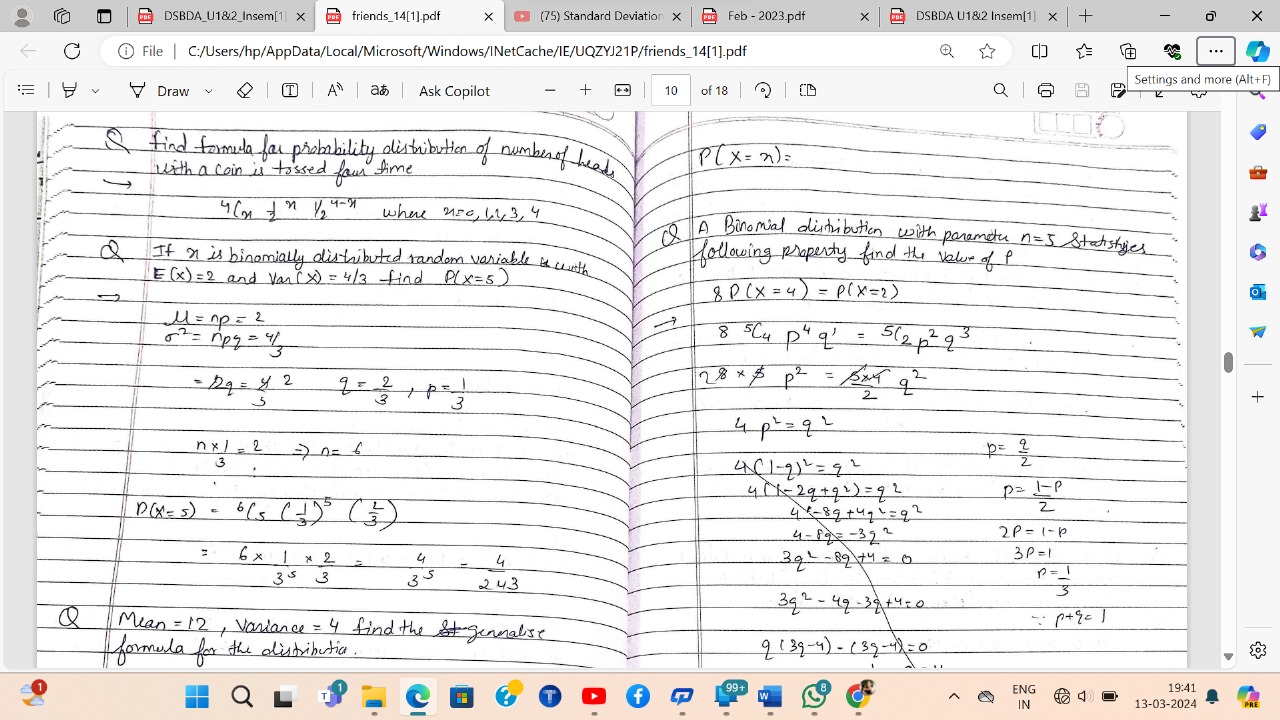 DSBDA_U1&2_Insem[1]
friends_14[1].pdf
(75) Standard Deviation
Feb - 2023.pdf
DSBDA U1&2 Insem[1]
File
C:/Users/hp/AppData/Local/Microsoft/Windows/INetCache/IE/UQZYJ21P/friends_14[1].pdf
Settings and more (Alt+F)
Draw
Ask Copilot
10 of 18
Q find formula for probability distribution of number of heads
with a coin is tossed four time
→
4Cx 1/2^x 1/2^4-x where x=0,1,2,3,4
Q If x is binomially distributed random variable is with
E(x)=2 and Var(x)=4/3 find P(x=5)
→
μ = np = 2
σ² = npq = 4/3
= 2q = 4/3 2 q = 2/3, p = 1/3
n×1/3 = 2 ⇒ n= 6
P(x=5) = 6C5 (1/3)^5 (2/3)
= 6 × 1/3^5 × 2/3 = 4/3^5 = 4/243
Q Mean = 12, variance = 4 find the generalise
formula for the distributio.
P(X=x)=
Q A Binomial distribution with parameter n=5 Statisfies
following property find the value of P
8P(X=4) = P(X=2)
→ 8 5C4 p^4 q' = 5C2 p² q³
28 × 5 p² = 5×4/2 q²
4 p² = q²
4(1-q)² = q²
4(1-2q+q²)=q²
4-8q+4q²=q²
4-8q=-3q²
3q² -8q+4 = 0
3q² -4q -3q+4=0
q(3q-4) -(3q-4)=0
p= q/2
p= 1-p/2
2p=1-p
3p=1
p= 1/3
∵ p+q=1
1
1
99+
8
ENG
IN
19:41
13-03-2024
PRE